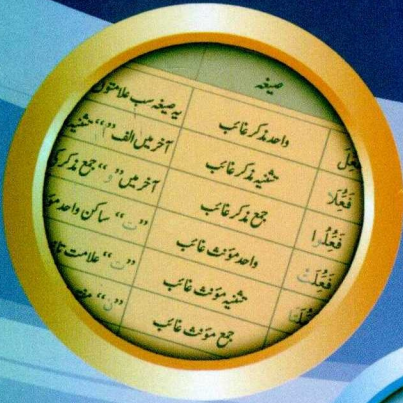 صیغہ
فعل واحد مذکر غائب یہ صیغہ سب علامتوں
فَعُلَا تثنیہ مذکر غائب آخر میں الف "ا" تثنیہ
فَعُلُوا جمع مذکر غائب آخر میں "و" جمع مذکر
فَعُلَتْ واحد مؤنث غائب "ت" ساکن واحد
تثنیہ مؤنث غائب "ت" علامت
جمع مؤنث غائب "ن"